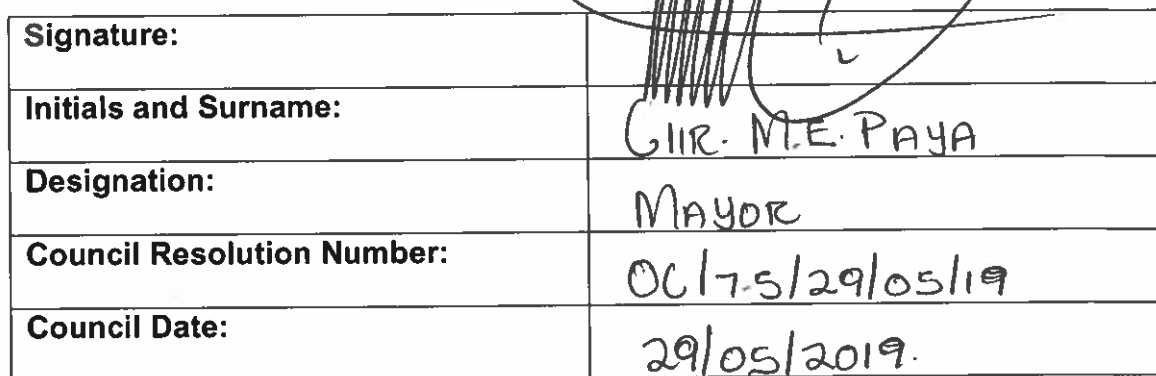 Signature:
Initials and Surname: Cllr. M.E. PAYA
Designation: MAYOR
Council Resolution Number: OC/7.5/29/05/19
Council Date: 29/05/2019.